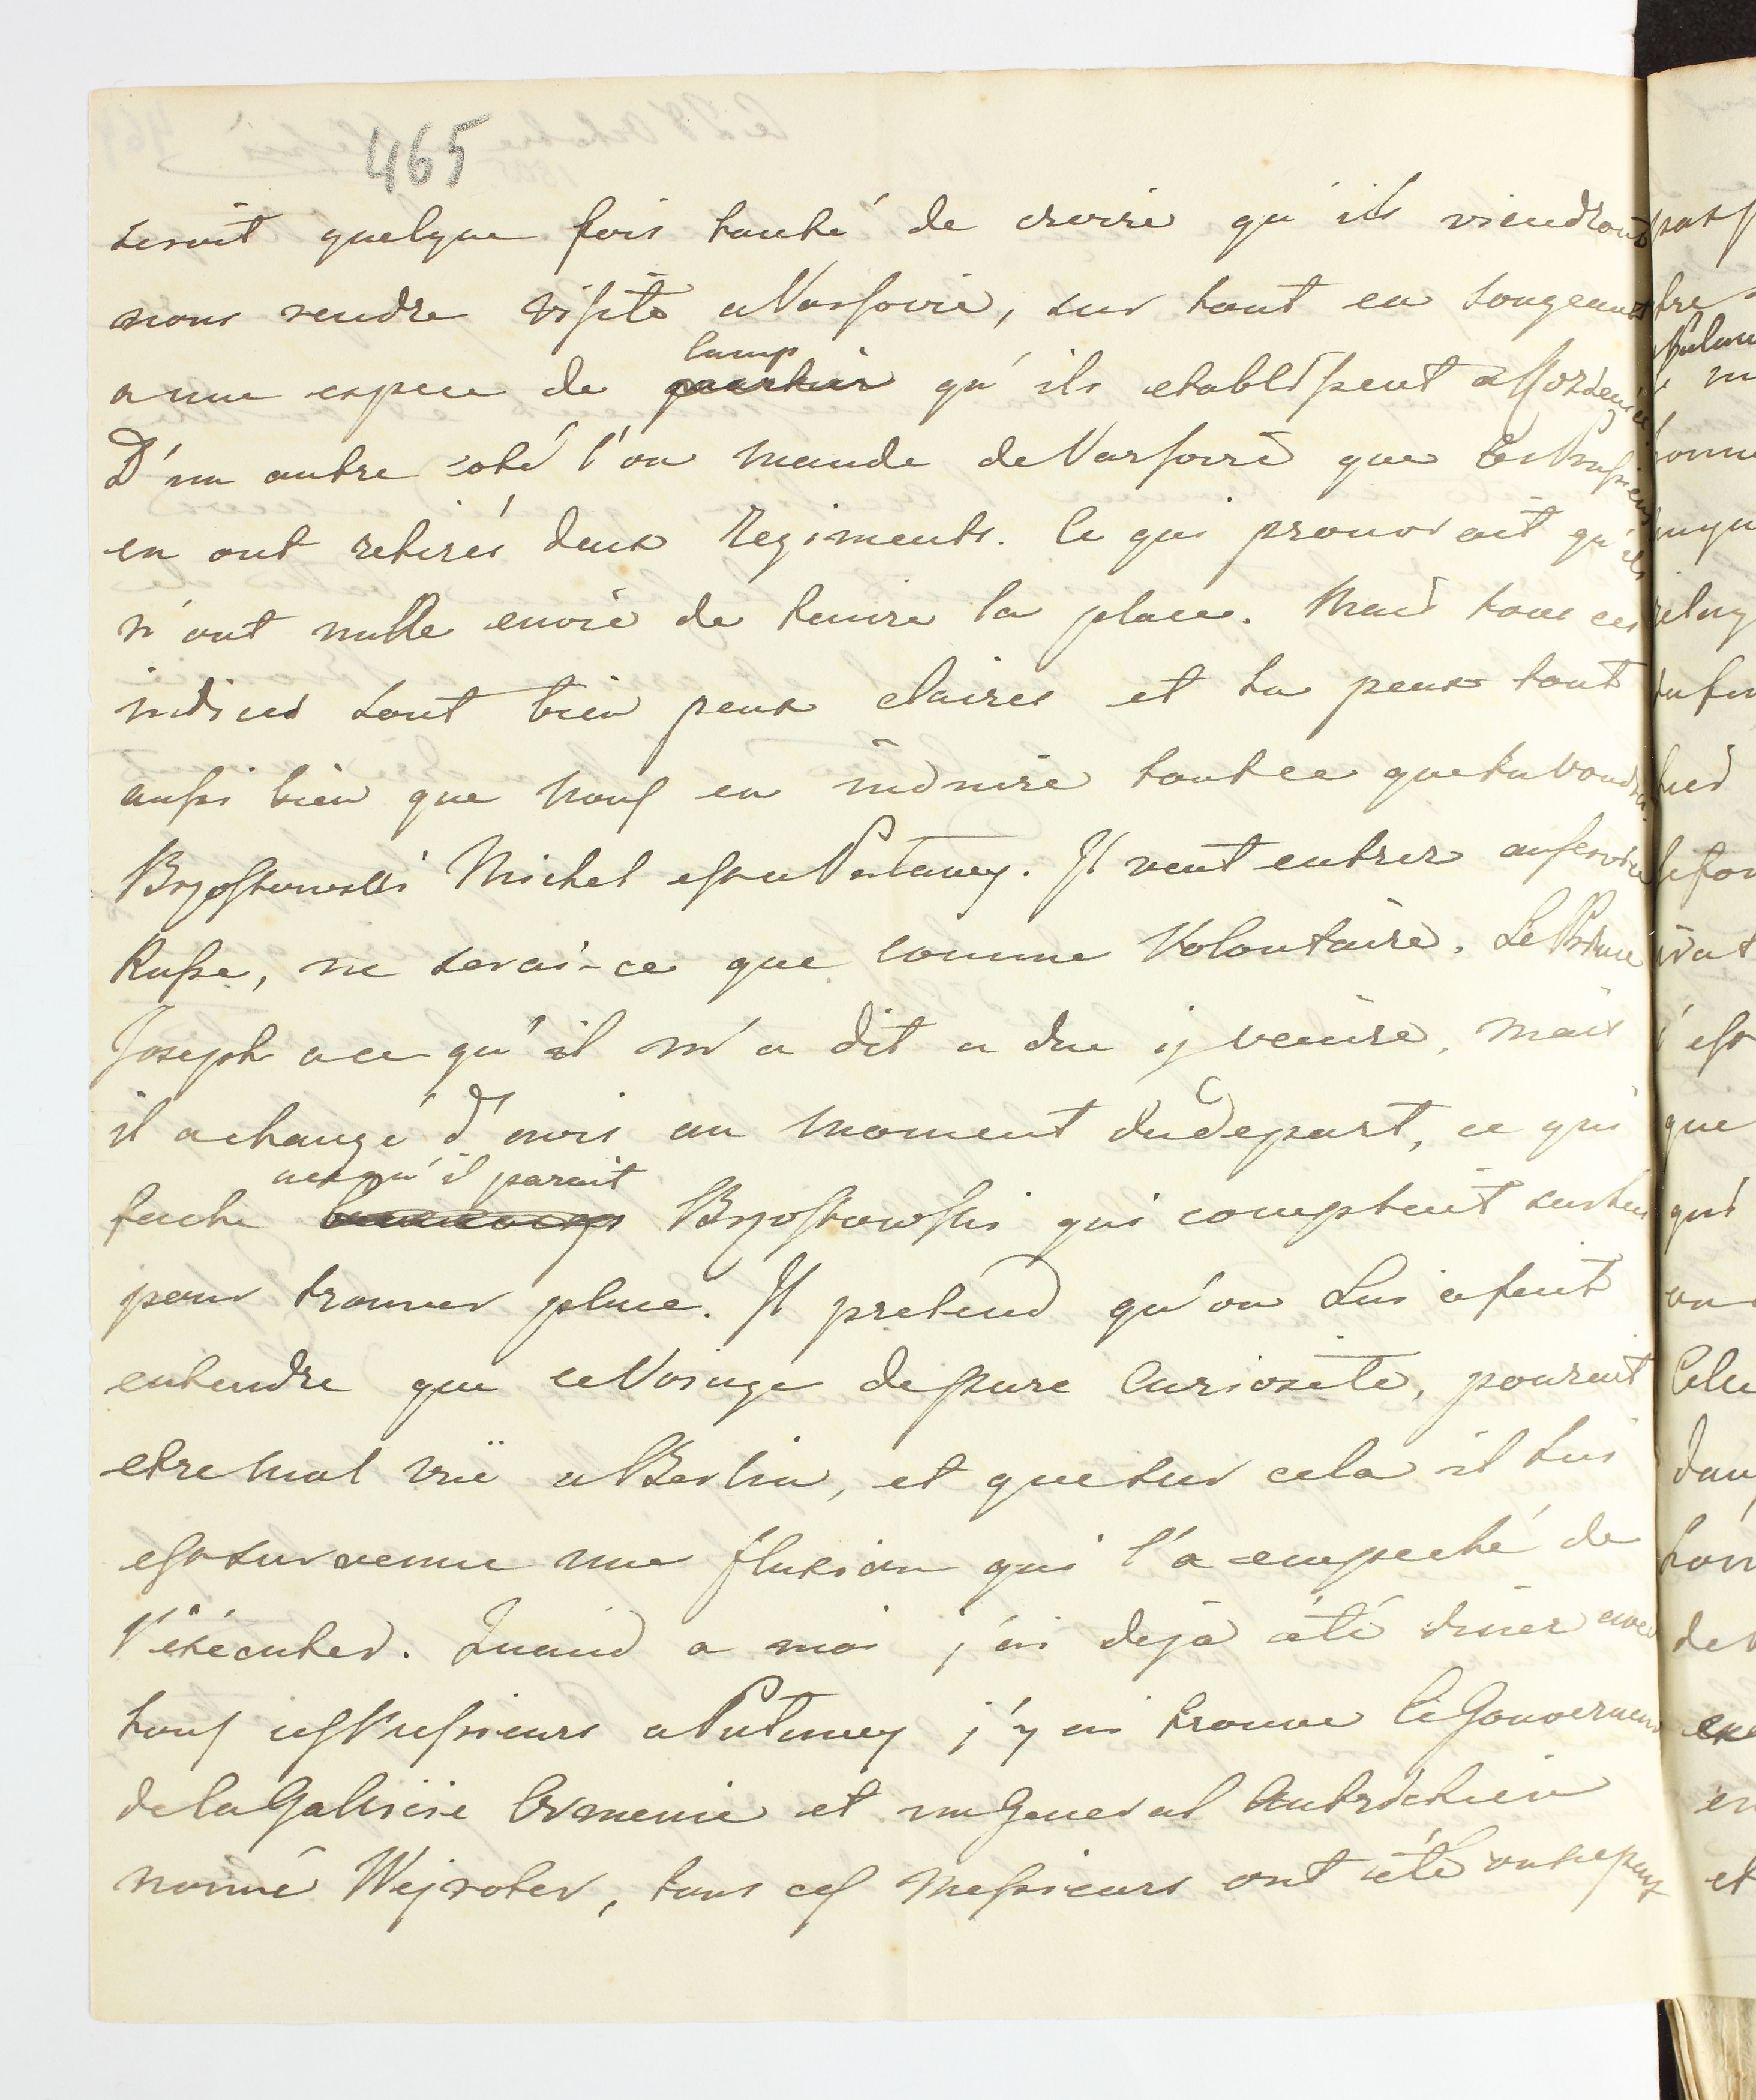 465
seroit quelque fois tenté de croire qu'ils viendront
nous rendre visite a Varsovie, sur tout en songeant
a une espece de camp quartier qu'ils etablissent a
D'un autre coté l'on mande de Varsovie que les Prussiens
en ont retirés deux Regiments. Ce qui prouverait qu'ils
n'ont nulle envie de tenire la place. Mais tous ces
indices sont bien peux claires et tu peux tout
aussi bien que nous en induire tout ce que tu voudra.
Brzostowski Michel est a Pulawy. Il veut entrer au service
Russe, ne serai-ce que comme Volontaire. Le Prince
Joseph a ce qu'il m'a dit a du ij venire, mais
il a changé d'avis au moment du depart, ce qui
fache a ce qu'il parait beaucoup Brzostowski qui comptait sur lui
pour trouver place. Il pretend qu'on Lui a fait
entendre que ce Voiage de pure Curiosité, pourait
etre mal vü a Berlin, et que sur cela il lui
est survenue une fluxion qui l'a empeché de
l'éxécuter. Quand a moi j'ai dejà été diner avec
tous ces Messieurs a Pulawy j'y ai trouve le Gouverneur
de la Galicie et un General Autrichien
nommé Wejroter, tous ces Messieurs ont été